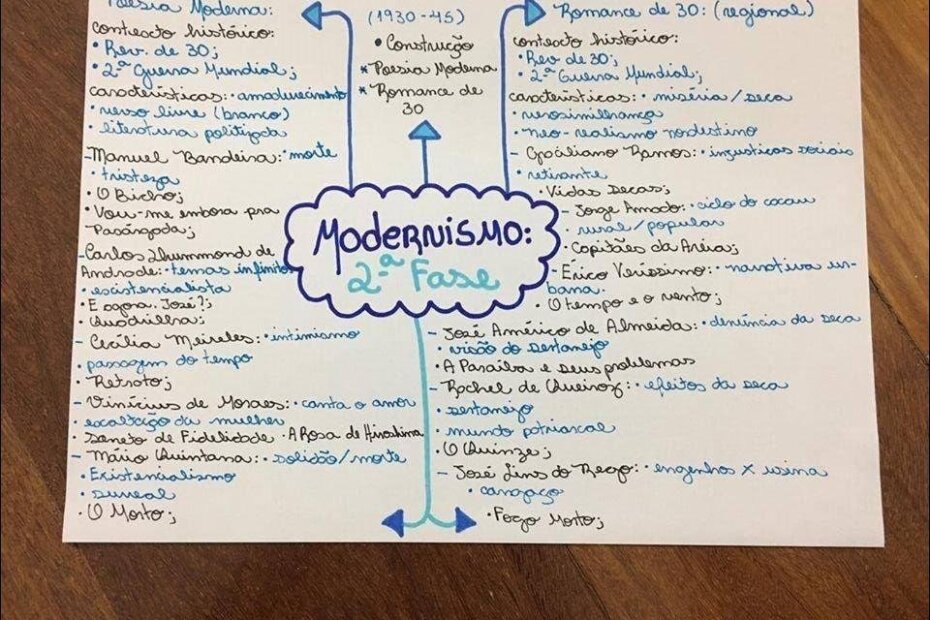 Poesia Moderna:
contexto histórico:
• Rev. de 30;
• 2ª Guerra Mundial;
características: • amadurecimento
• verso livre (branco)
• literatura politizada
- Manuel Bandeira: • morte
• tristeza
• O Bicho;
• Vou-me embora pra
Pasárgada;
- Carlos Drummond de
Andrade: • temas infinitos
• existencialista
• E agora, José?;
• Quadrilha;
- Cecília Meireles: • intimismo
• passagem do tempo
• Retrato;
- Vinícius de Moraes: • canta o amor
• exaltação da mulher
• Soneto de Fidelidade • A Rosa de Hiroshima
- Mário Quintana: • solidão/morte
• Existencialismo
• surreal
• O Morto;
(1930-45)
• Construção
* Poesia Moderna
* Romance de
30
Modernismo:
2ª Fase
Romance de 30: (regional)
contexto histórico:
• Rev de 30;
• 2ª Guerra Mundial;
características: • miséria/seca
• verossimilhança
• neo-realismo nordestino
- Graciliano Ramos: • injustiças sociais
• retirante
• Vidas Secas;
- Jorge Amado: • ciclo do cacau
• rural/popular
• Capitães da Areia;
- Érico Veríssimo: • narrativa ur-
bana.
• O tempo e o vento;
- José Américo de Almeida: • denúncia da seca
• visão do sertanejo
• A Paraíba e seus problemas
- Rachel de Queiroz: • efeitos da seca
• sertanejo
• mundo patriarcal
• O Quinze;
- José Lins do Rego: • engenhos X usina
• cangaço
• Fogo Morto;